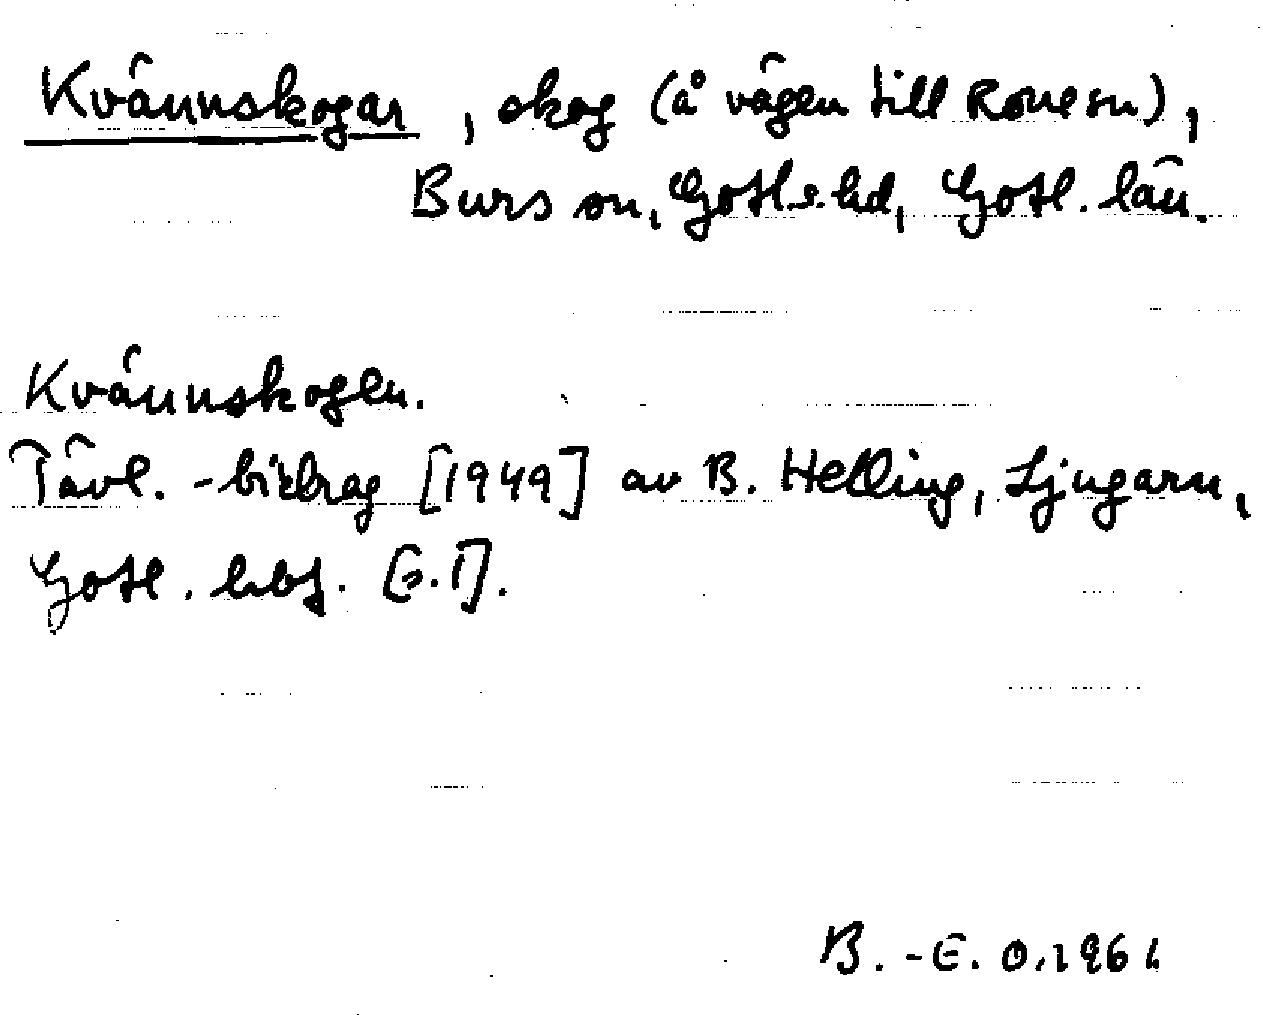 Kvännskogar, skog (å vägen till Rone sn),
Burs sn, Gotl. s. hd, Gotl. län.
Kvännskogen.
Tävl.-bidrag [1949] av B. Helling, Ljugarn,
Gotl. hbf.
B.-E. O. 1961